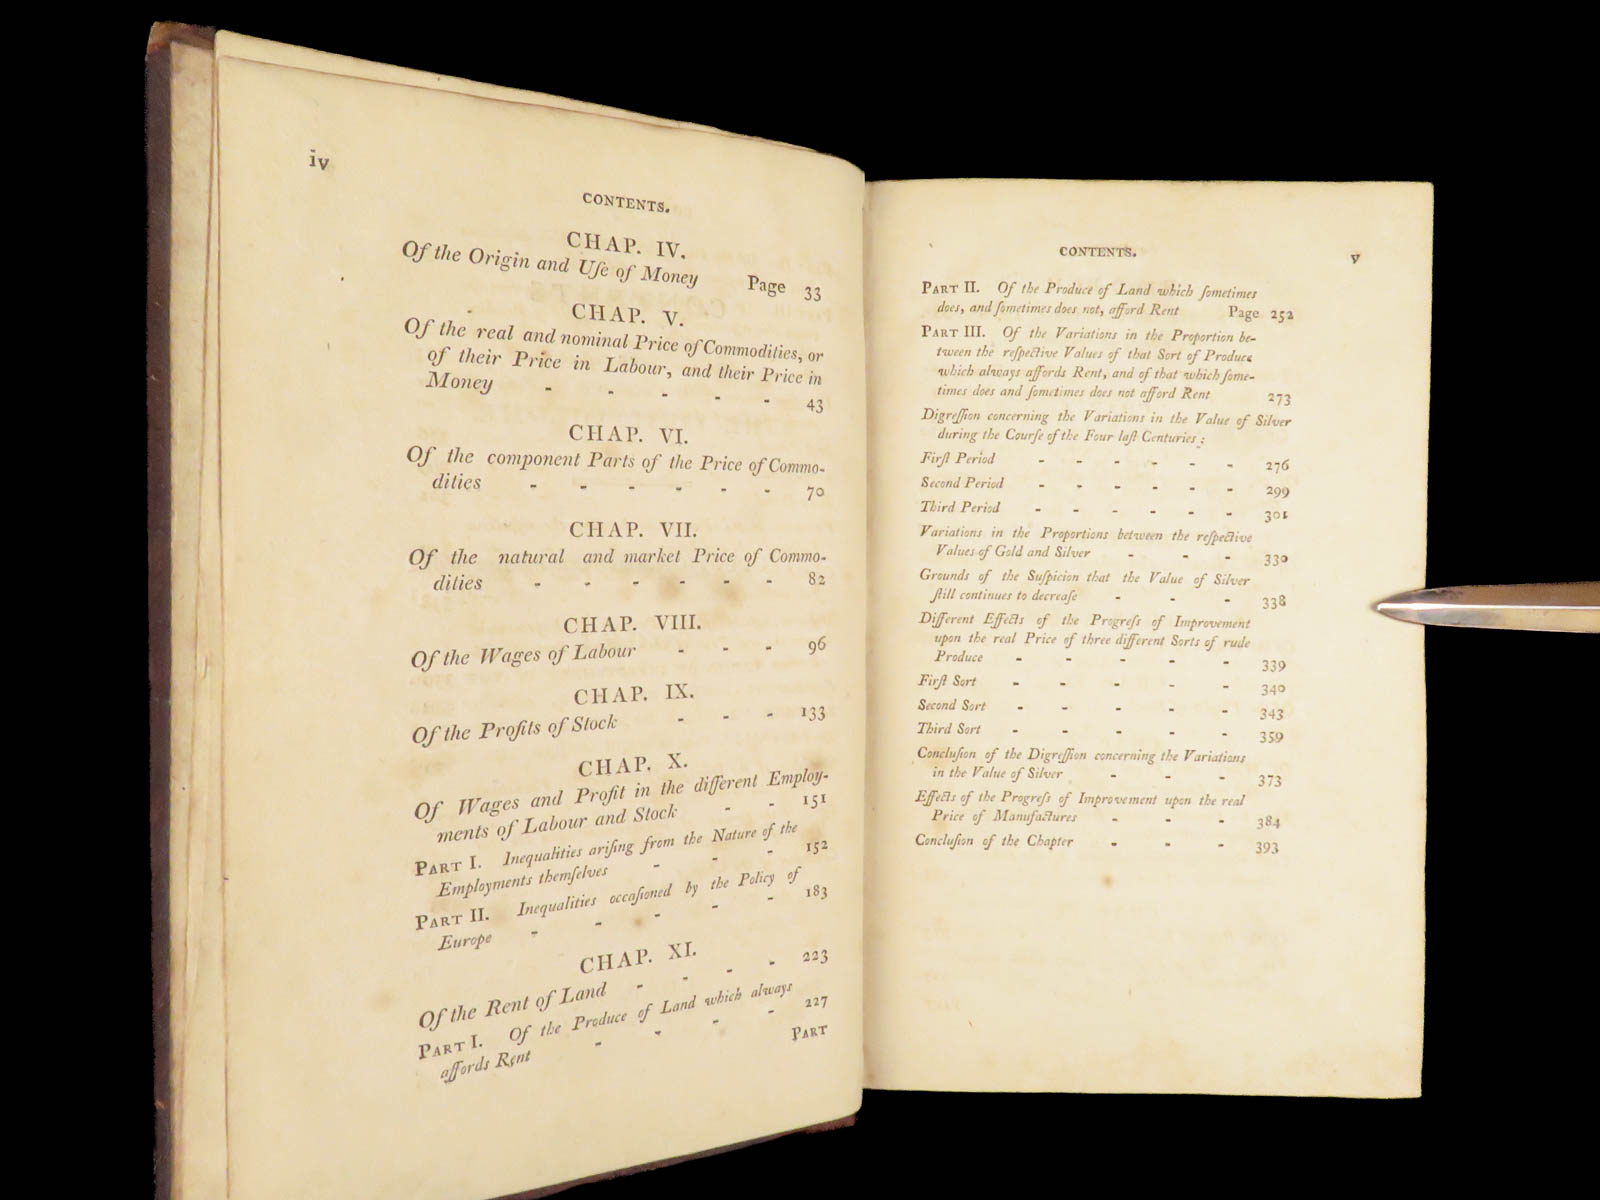 iv
CONTENTS.
CHAP. IV.
Of the Origin and Uſe of Money Page 33
CHAP. V.
Of the real and nominal Price of Commodities, or
of their Price in Labour, and their Price in
Money - - - - - 43
CHAP. VI.
Of the component Parts of the Price of Commo-
dities - - - - - - 70
CHAP. VII.
Of the natural and market Price of Commo-
dities - - - - - - 82
CHAP. VIII.
Of the Wages of Labour - - - 96
CHAP. IX.
Of the Profits of Stock - - - 133
CHAP. X.
Of Wages and Profit in the different Employ-
ments of Labour and Stock - - 151
PART I. Inequalities ariſing from the Nature of the
Employments themſelves - - - 152
PART II. Inequalities occaſioned by the Policy of
Europe - - - - - 183
CHAP. XI.
Of the Rent of Land - - - - 223
PART I. Of the Produce of Land which always
affords Rent - - - - 227
PART
CONTENTS. v
PART II. Of the Produce of Land which ſometimes
does, and ſometimes does not, afford Rent Page 252
PART III. Of the Variations in the Proportion be-
tween the reſpective Values of that Sort of Produce
which always affords Rent, and of that which ſome-
times does and ſometimes does not afford Rent 273
Digreſſion concerning the Variations in the Value of Silver
during the Courſe of the Four laſt Centuries:
Firſt Period - - - - - - 276
Second Period - - - - - - 299
Third Period - - - - - - 301
Variations in the Proportions between the reſpective
Values of Gold and Silver - - - 330
Grounds of the Suſpicion that the Value of Silver
ſtill continues to decreaſe - - - 338
Different Effects of the Progreſs of Improvement
upon the real Price of three different Sorts of rude
Produce - - - - - 339
Firſt Sort - - - - - 340
Second Sort - - - - - 343
Third Sort - - - - - 359
Concluſion of the Digreſſion concerning the Variations
in the Value of Silver - - - 373
Effects of the Progreſs of Improvement upon the real
Price of Manufactures - - - 384
Concluſion of the Chapter - - - 393